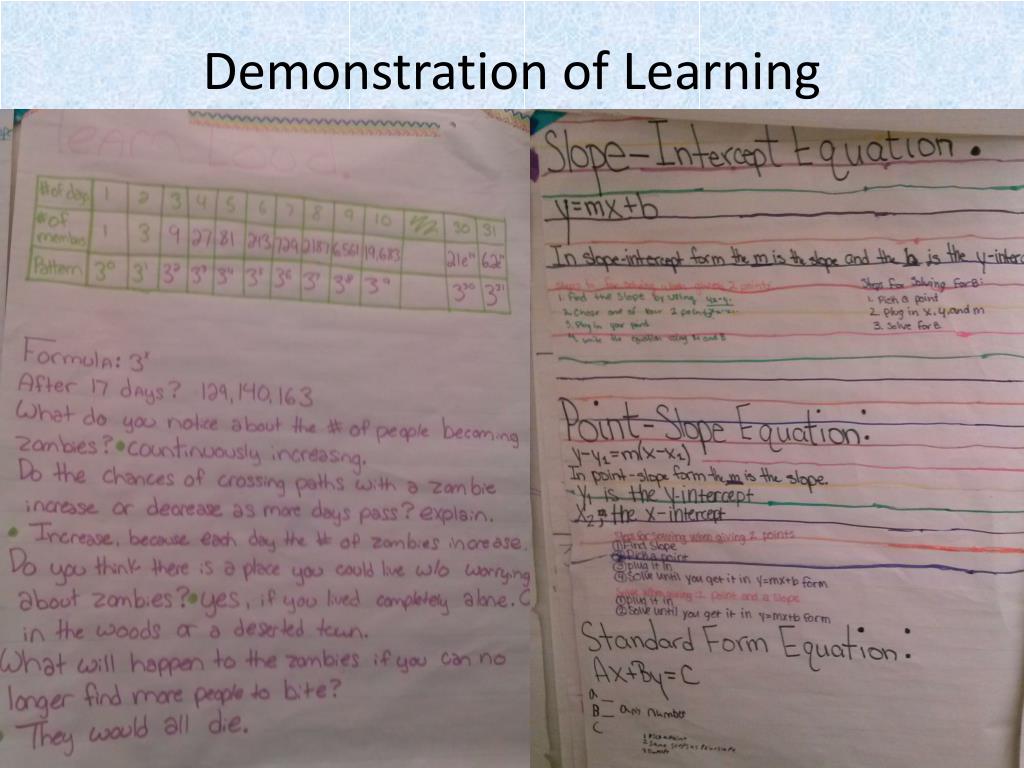 Demonstration of Learning
Team Loud.
# of days 1 2 3 4 5 6 7 8 9 10 30 31
# of 1 3 9 27 81 243 729 2187 6561 19,683
Pattern 3⁰ 3¹ 3² 3³ 3⁴ 3⁵ 3⁶ 3⁷ 3⁸ 3⁹ 3³⁰ 3³¹
Formula: 3ˣ
After 17 days? 129,140,163
What do you notice about the # of people becoming
zombies? • countinuously increasing.
Do the chances of crossing paths with a zombie
increase or decrease as more days pass? explain.
• Increase, because each day the # of zombies increase.
Do you think there is a place you could live w/o worrying
about zombies? • yes, if you lived completely alone.
in the woods or a deserted town.
What will happen to the zombies if you can no
longer find more people to bite?
• They would all die.
Slope-Intercept Equation.
y=mx+b
In slope-intercept form the m is the slope and the b is the y-interc
Steps for solving when given 2 points
1. Find the slope by using
2. Chose one of your 2 points
3. Plug in your point
4. write the equation using M and B
Steps For Solving For B:
1. Pick a point
2. Plug in x, y, and m
3. Solve for B
Point-Slope Equation:
y-y₁=m(x-x₁)
In point-slope form the m is the slope.
y₁ is the y-intercept
the x-intercept
Steps for solving when giving 2 points
① Find Slope
② Pick a point
③ plug it in
④ Solve until you get it in y=mx+b form
Solve when giving 1 point and a slope
① plug it in
② Solve until you get it in y=mx+b form
Standard Form Equation:
Ax+By=C
a
B number
C